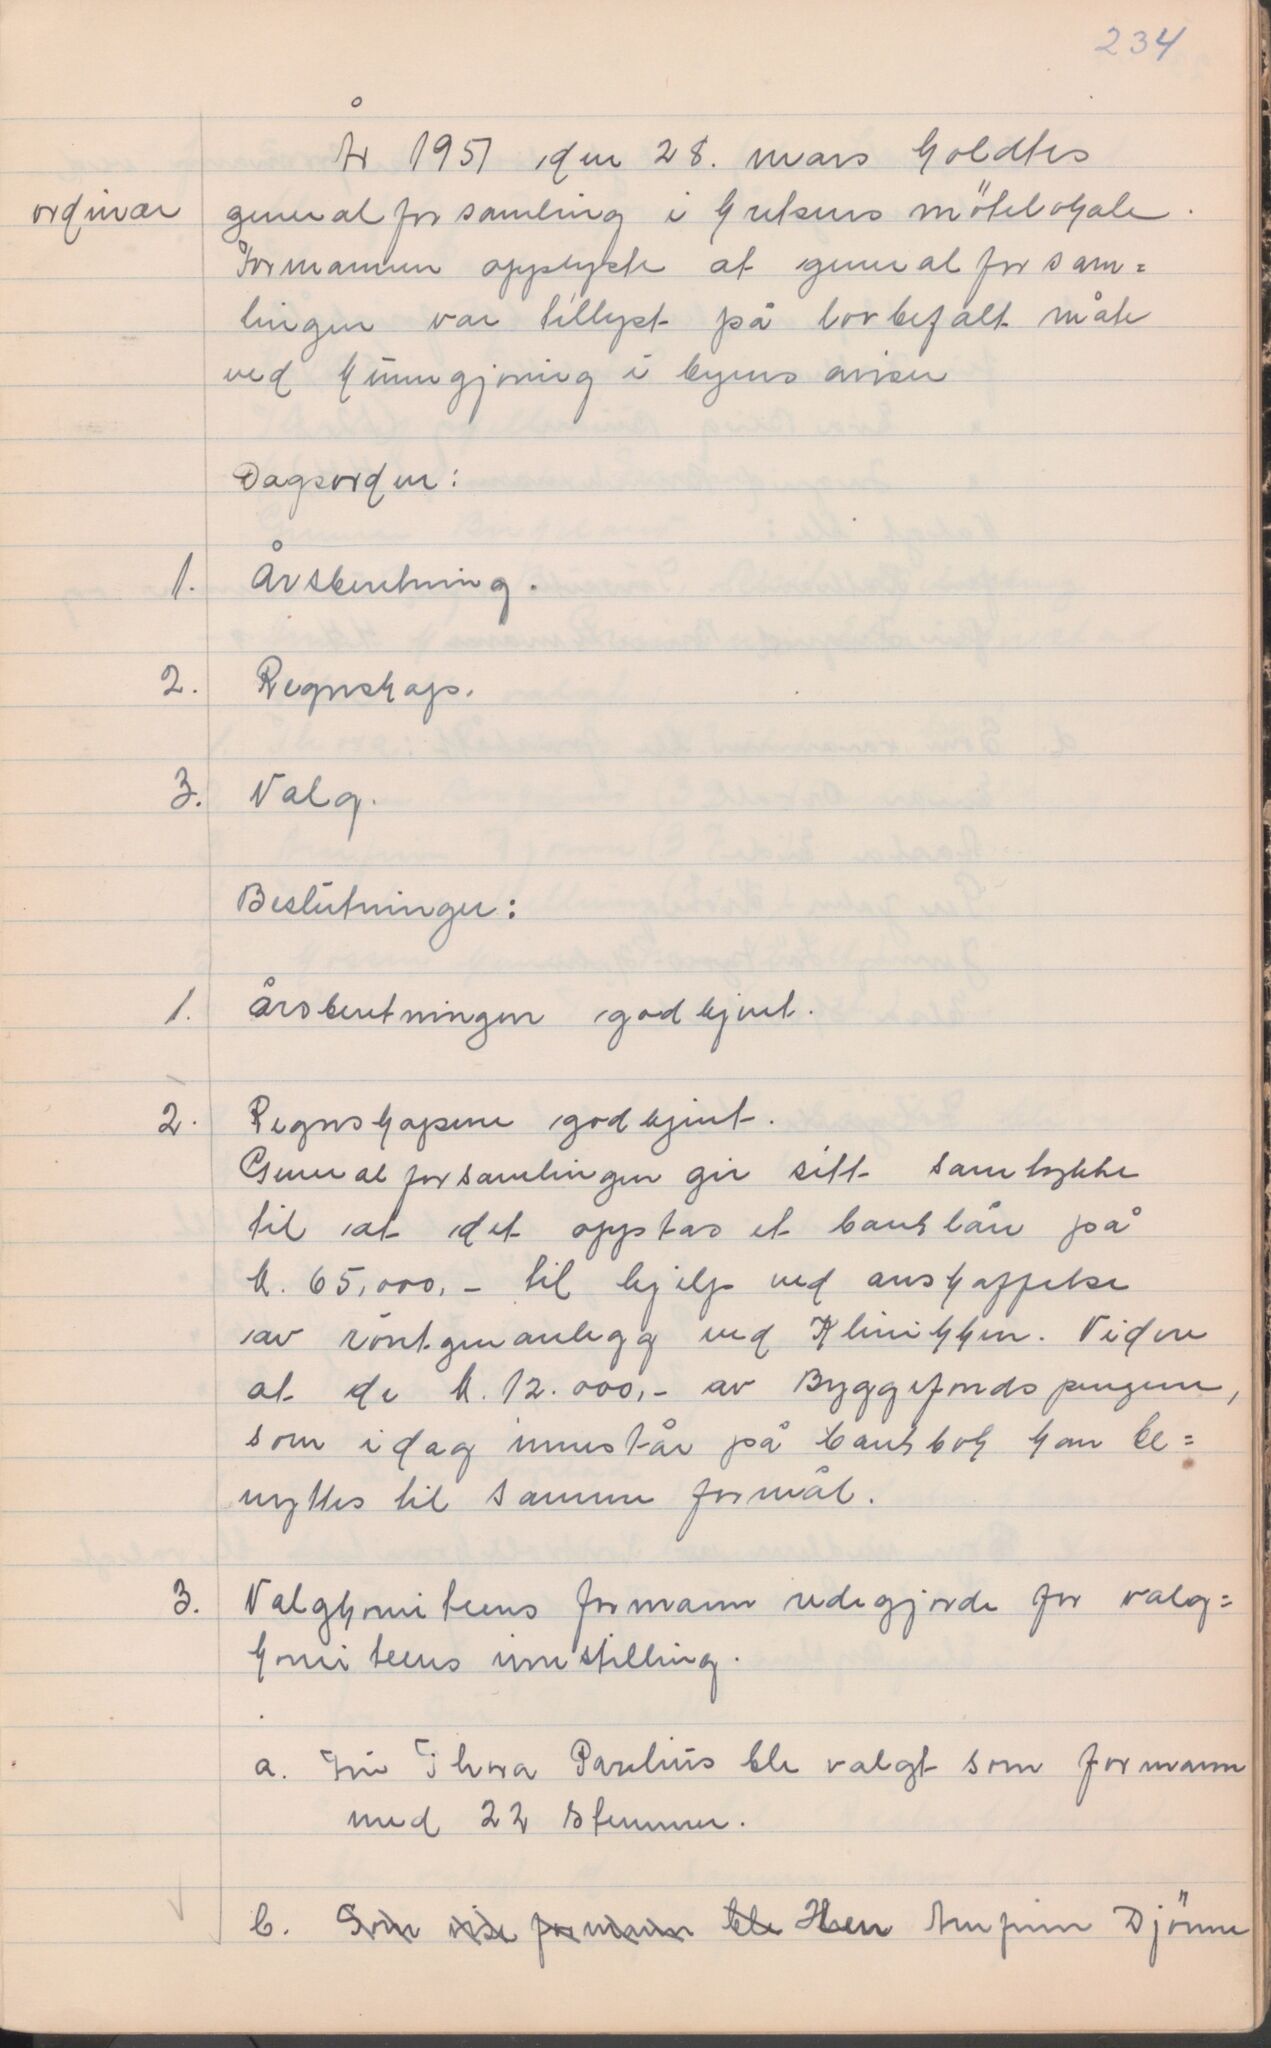 234
År 1951 den 28. mars holdtes
ordinær generalforsamling i kretsens mötelokale.
Formannen opplyste at generalforsam=
lingen var tillyst på lovbefalt måte
ved kunngjöring i byens aviser
Dagsorden:
1. Årsberetning.
2. Regnskap.
3. Valg.
Beslutninger:
1. Årsberetningen godkjent.
2. Regnskapene godkjent.
Generalforsamlingen gir sitt samtykke
til at det opptas et banklån på
k. 65,000,- til hjelp ved anskaffelse
av röntgenanlegg ved Klinikken. Videre
at de k. 12.000,- av Byggefondspengene,
som idag innestår på bankbok kan be=
nyttes til samme formål.
3. Valgkomiteens formann redegjorde for valg=
komiteens innstilling.
a. Fru Thora Paulius ble valgt som formann
med 22 stemmer.
b. Som vise formann ble Herr Arnfinn Djönne